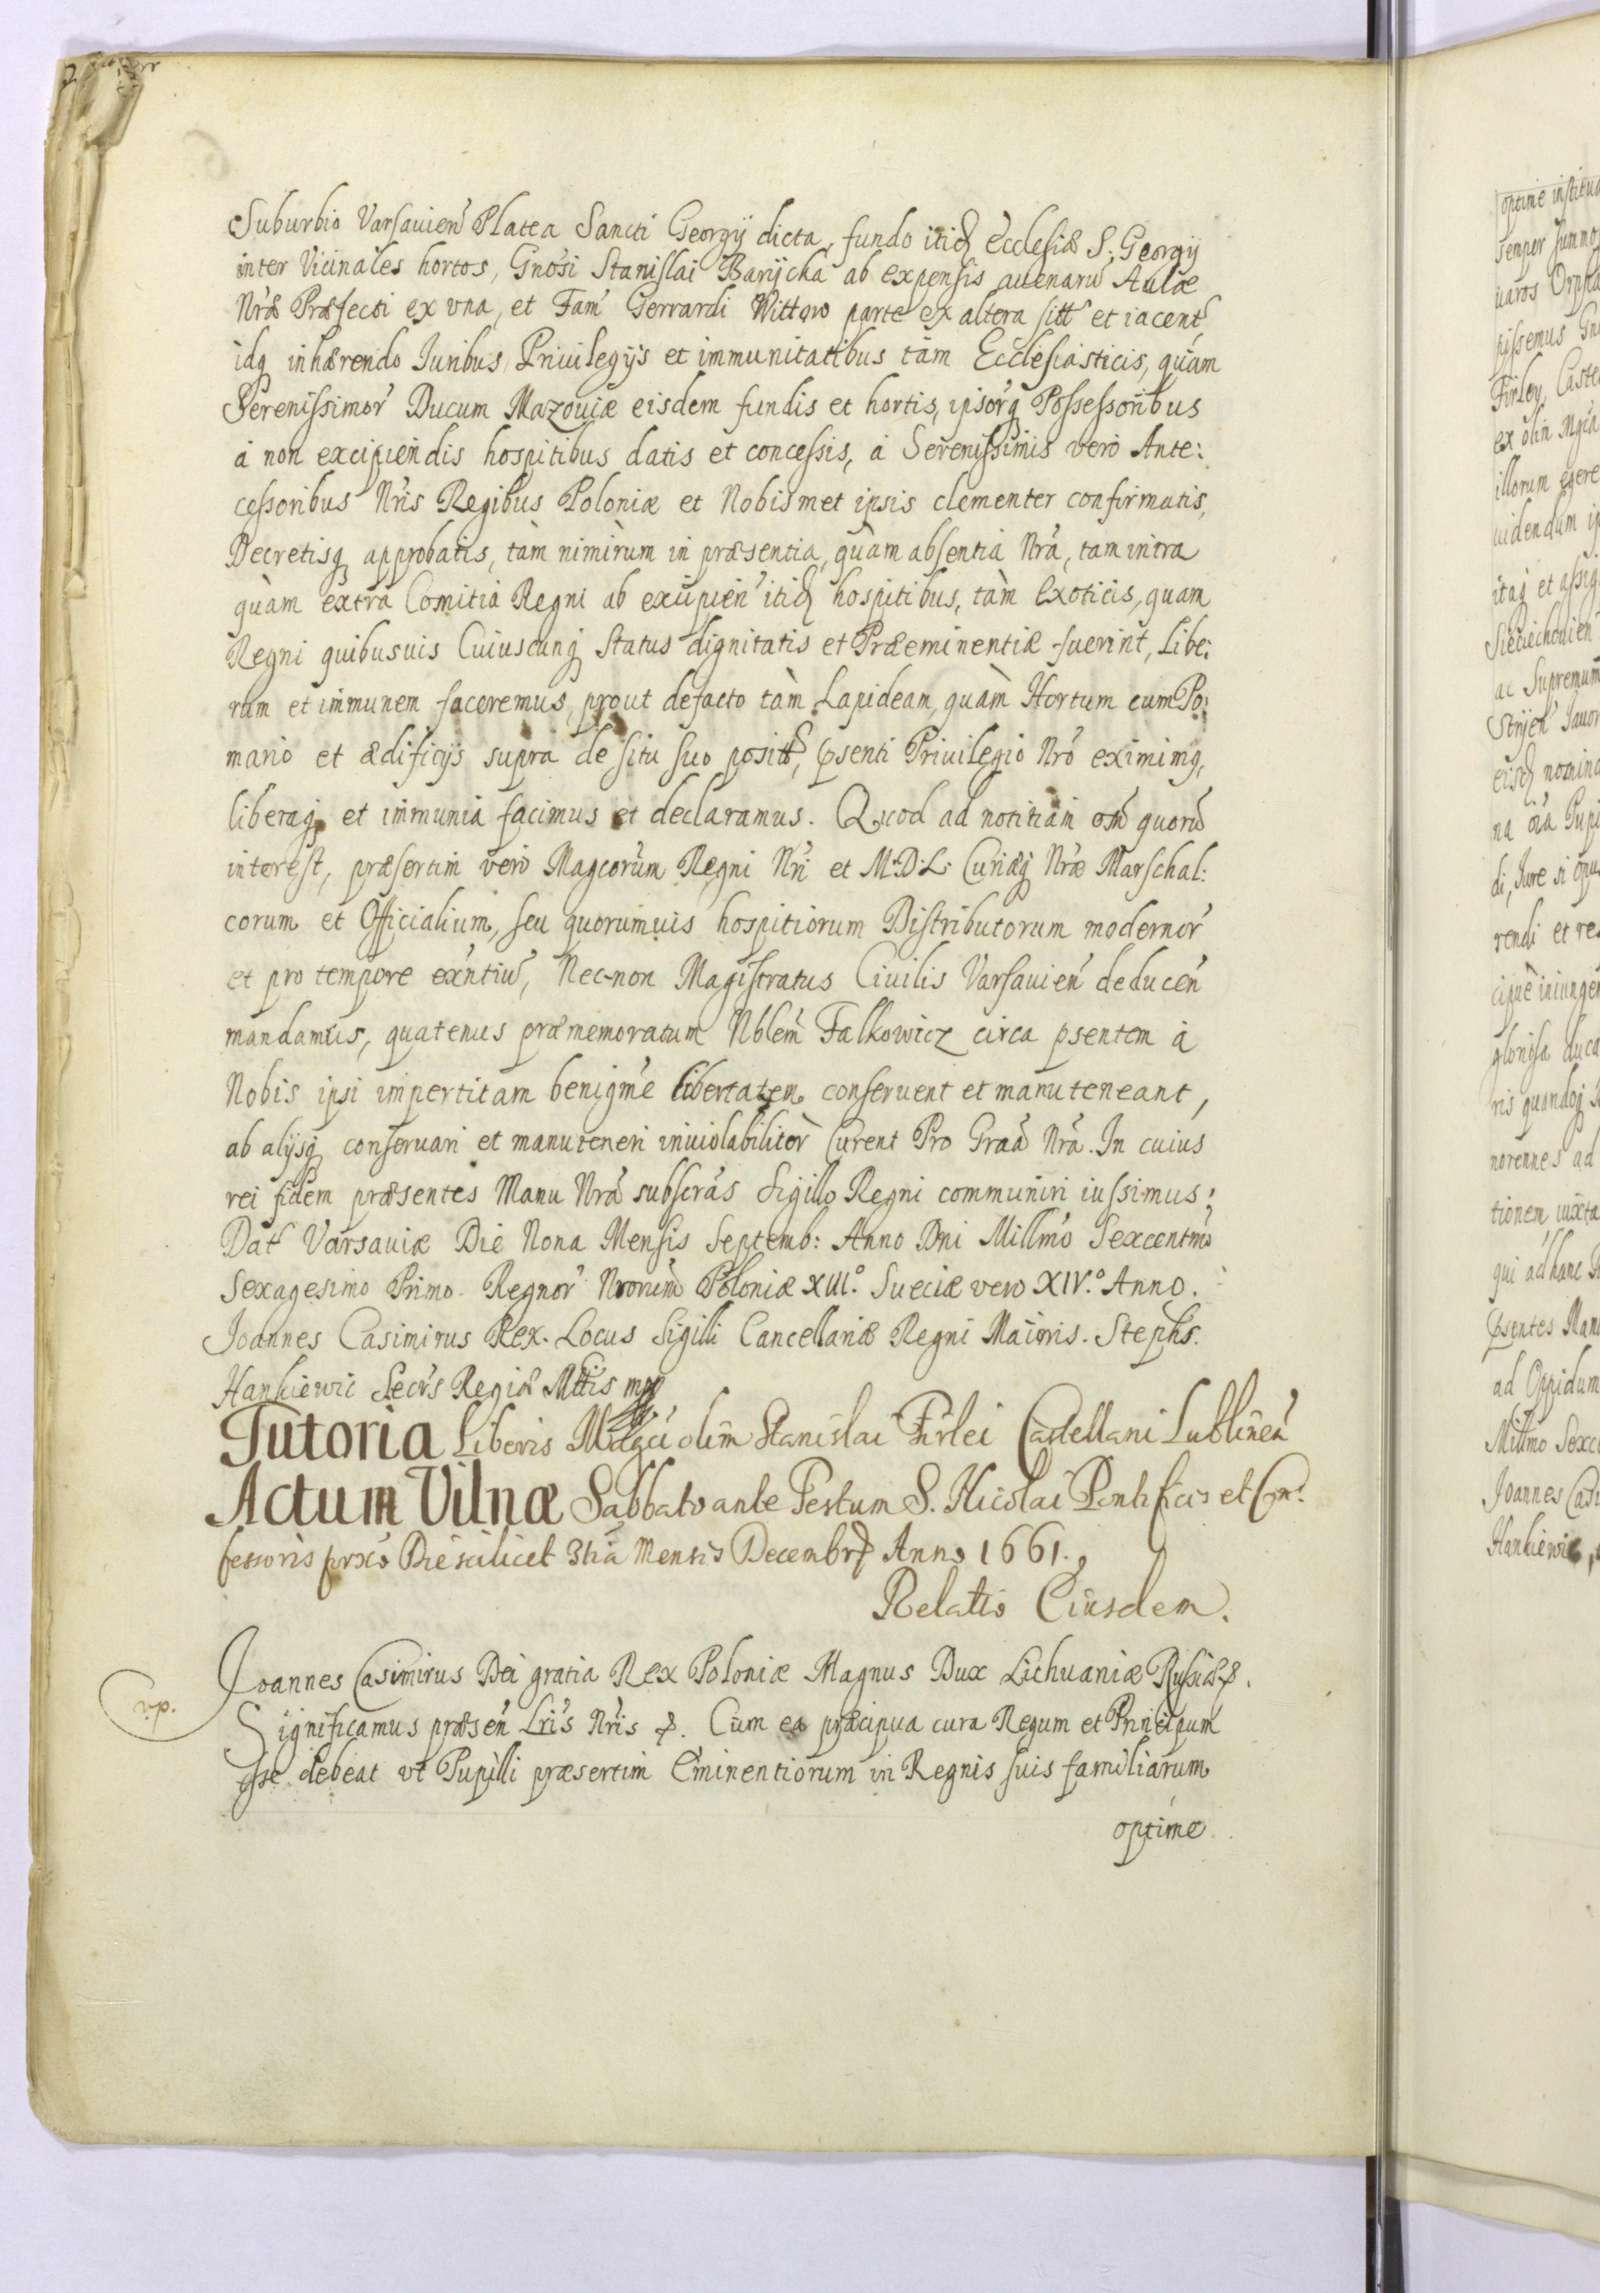 Suburbio Varsavien̄ Platea Sancti Georgij dicta, fundo itid Ecclesiæ S. Georgij
inter Vicinales hortos, Gn̄osi Stanislai Barijcka ab expensis avenarū Aulæ
Nr̄æ Præfecti ex vna, et Fam̄ Gerrardi Wittow parte ex altera sitt̄ et iacent̄
idq inhærendo Juribus Priuilegijs et immunitatibus tam Ecclesiasticis, quàm
Serenissimor̄ Ducum Mazouiæ eisdem fundis et hortis, ipsor̄q Possessoribus
à non excipiendis hospitibus datis et concessis, à Serenissimis verò Ante:
cessoribus Nr̄is Regibus Poloniæ et Nobismet ipsis clementer confirmatis,
Decretisq approbatis, tàm nimirum in præsentia, quàm absentia Nr̄a, tam intra
quàm extra Comitia Regni ab excipien̄ itid hospitibus, tàm Exoticis, quam
Regni quibusuis Cuiuscunq Status dignitatis et Præeminentiæ fuerint, Libe:
rum et immunem faceremus, prout defacto tàm Lapideam, quàm Hortum cum Po:
mario et ædificijs supra de situ suo positt̄, p̄senti Priuilegio Nr̄o eximimq,
liberaq et immunia facimus et declaramus. Quod ad notitiam om̄ quorū
interest, præsertim verò Magcorum Regni Nr̄i et M.D.L. Curiæq Nr̄æ Marschal:
corum et Officialium, seu quorumuis hospitiorum Distributorum modernor̄
et pro tempore exn̄tiū, Nec-non Magistratus Ciuilis Varsauien̄ deducen̄
mandamus, quatenus præmemoratum Nblem̄ Falkowicz circa p̄sentem à
Nobis ipsi impertitam benigme libertatem conseruent et manuteneant,
ab alijsq conseruari et manuteneri inuiolabiliter Curent Pro Graa̅ Nr̄a. In cuius
rei fidem præsentes Manu Nr̄a subscrās Sigillo Regni communiri iussimus;
Dat̄ Varsauiæ Die Nona Mensis Septemb: Anno Dn̄i Millm̄o Sexcentm̄o
Sexagesimo Primo. Regnor̄ Nrorum̄ Poloniæ XIII.º Sueciæ vero XIV.º Anno.
Joannes Casimirus Rex. Locus Sigilli Cancellariæ Regni Maioris. Stephs.
Hankiewic Secr̄s Regiæ Mttis mp
Tutoria Liberis Magci olim Stanislai Firlei Castellani Lublinen̄
Actum Vilnæ Sabbato ante Festum S. Nicolai Pontificis et Con:
fessoris prxo̅ Die scilicet 3tia Mensis Decembr Anno 1661.
Relatio Eiusdem.
Joannes Casimirus Dei gratia Rex Poloniæ Magnus Dux Lithuaniæ Russiæ &.
Significamus præsen̄ Lr̄is Nr̄is &. Cum ea præcipua cura Regum et Principum
esse debeat vt Pupilli præsertim Eminentiorum in Regnis suis familiarum
optime
optime institu
semper summo
pissemus Gn
Firley Caste
ex olim Mgcī
illorum egere
uidendum ip
itaq et assig
Sieciechouien̄
ac Supremum
Stryen̄ Jauor
eisd nomina
di, Jure si opus
rendi et re
cipuè iniungen
ris quandoq
norennes ad
tionem iuxta
qui ad hanc
p̄sentes Man
ad Oppidum
Millm̄o Sexc
Joannes Casi
Hankiewic